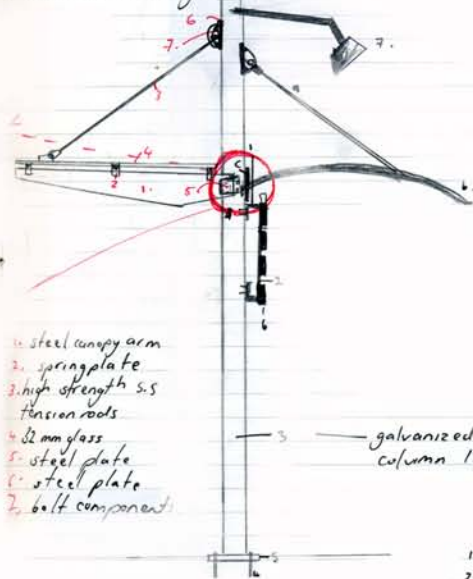 6
7.
7.
3
4
2
1.
5
6
1
2
6
6.
1. steel canopy arm
2. springplate
3. high strength s.s
tension rods
4 32 mm glass
5. steel plate
6. steel plate
7. bolt components
3
galvanized
column 1
5
4
1
2